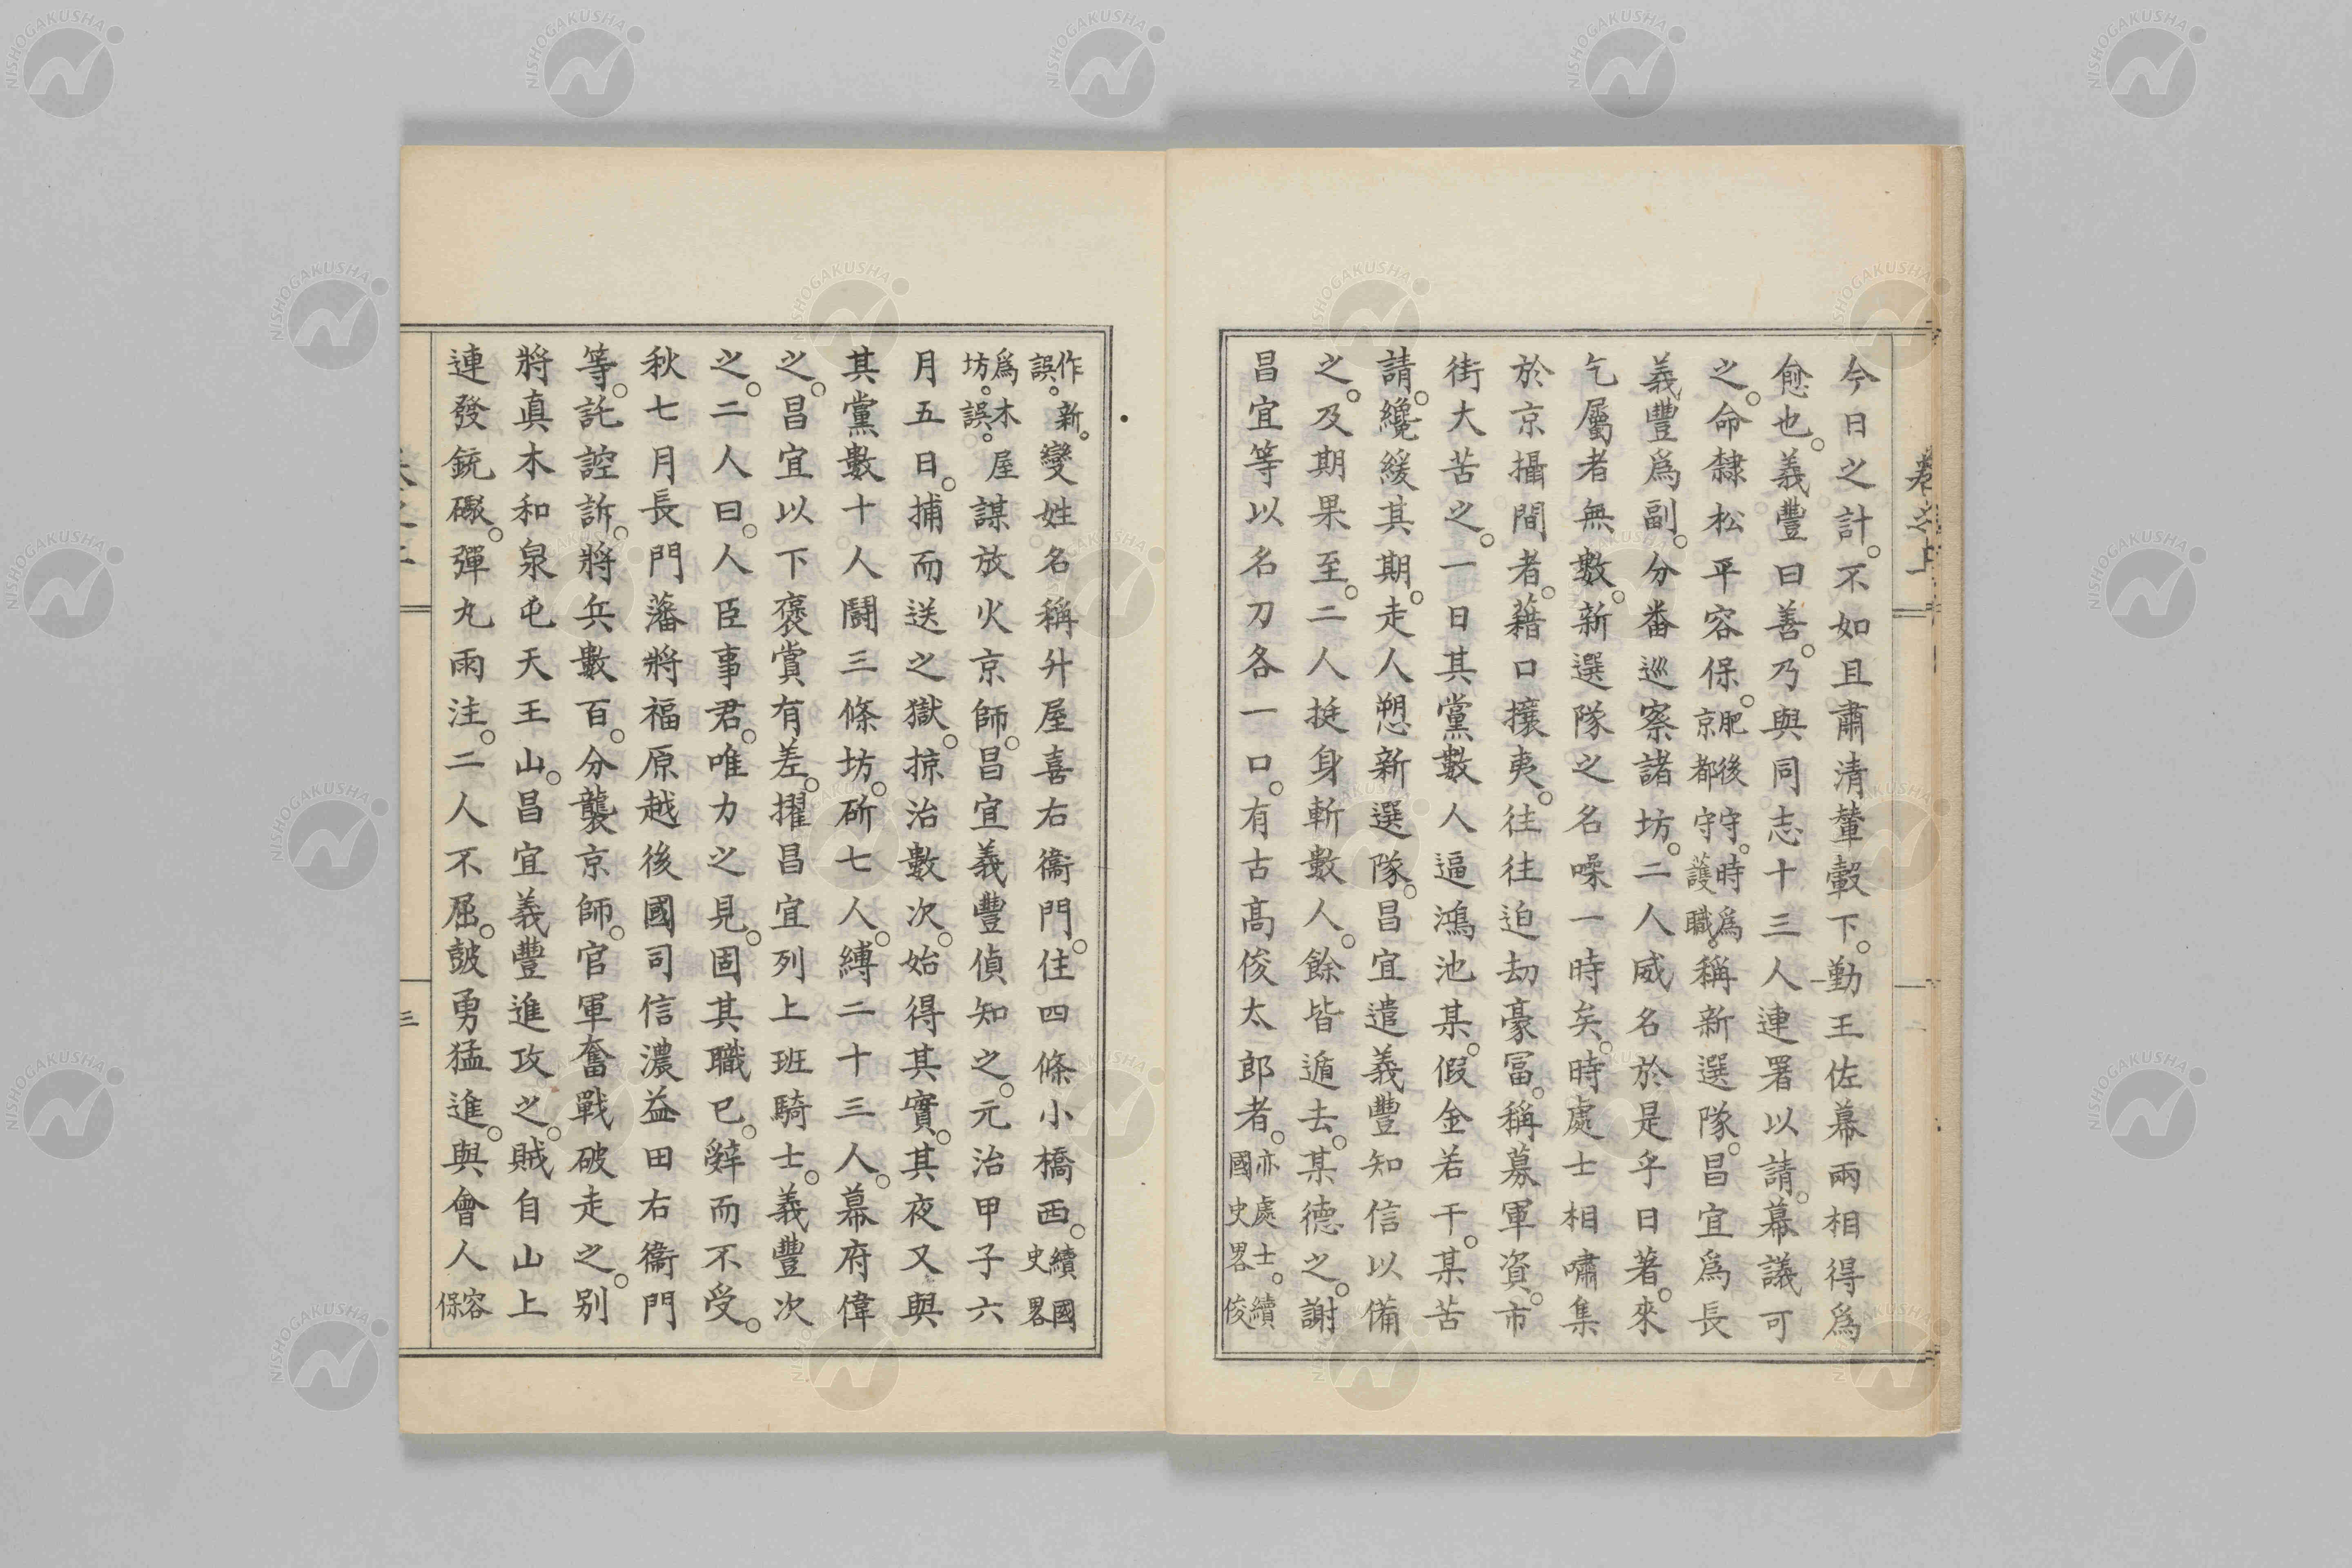 今日之計。不如且肅清輦轂下。勤王佐幕兩相得爲
愈也。義豐曰善。乃與同志十三人連署以請。幕議可
之。命隸松平容保。肥後守。時爲京都守護職。稱新選隊。昌宜爲長
義豐爲副。分番巡察諸坊。二人威名於是乎日著。來
乞屬者無數。新選隊之名噪一時矣。時處士相嘯集
於京攝間者。藉口攘夷。往往迫劫豪冨。稱募軍資。市
街大苦之。一日其黨數人逼鴻池某。假金若干。某苦
請。纔緩其期。走人愬新選隊。昌宜遣義豐知信以備
之。及期果至。二人挺身斬數人。餘皆遁去。某德之。謝
昌宜等以名刀各一口。有古高俊太郎者。亦處士。續國史畧俊
作新。誤。變姓名稱升屋喜右衞門。住四條小橋西。續國史畧
爲木屋坊。誤。謀放火京師。昌宜義豐偵知之。元治甲子六
月五日。捕而送之獄。掠治數次。始得其實。其夜又與
其黨數十人鬪三條坊。斫七人。縛二十三人。幕府偉
之。昌宜以下褒賞有差。擢昌宜列上班騎士。義豐次
之。二人曰。人臣事君。唯力之見。固其職已。辭而不受。
秋七月長門藩將福原越後國司信濃益田右衞門
等。託誣訴。將兵數百。分襲京師。官軍奮戰破走之。別
將眞木和泉屯天王山。昌宜義豐進攻之。賊自山上
連發銃礮。彈丸雨注。二人不屈。皷勇猛進。與會人容保
卷之上
三
NISHOGAKUSHA